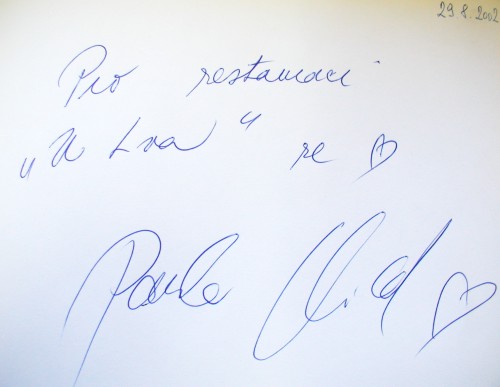 29.8.2002
Pro restauraci
„U Lva“ se ♡